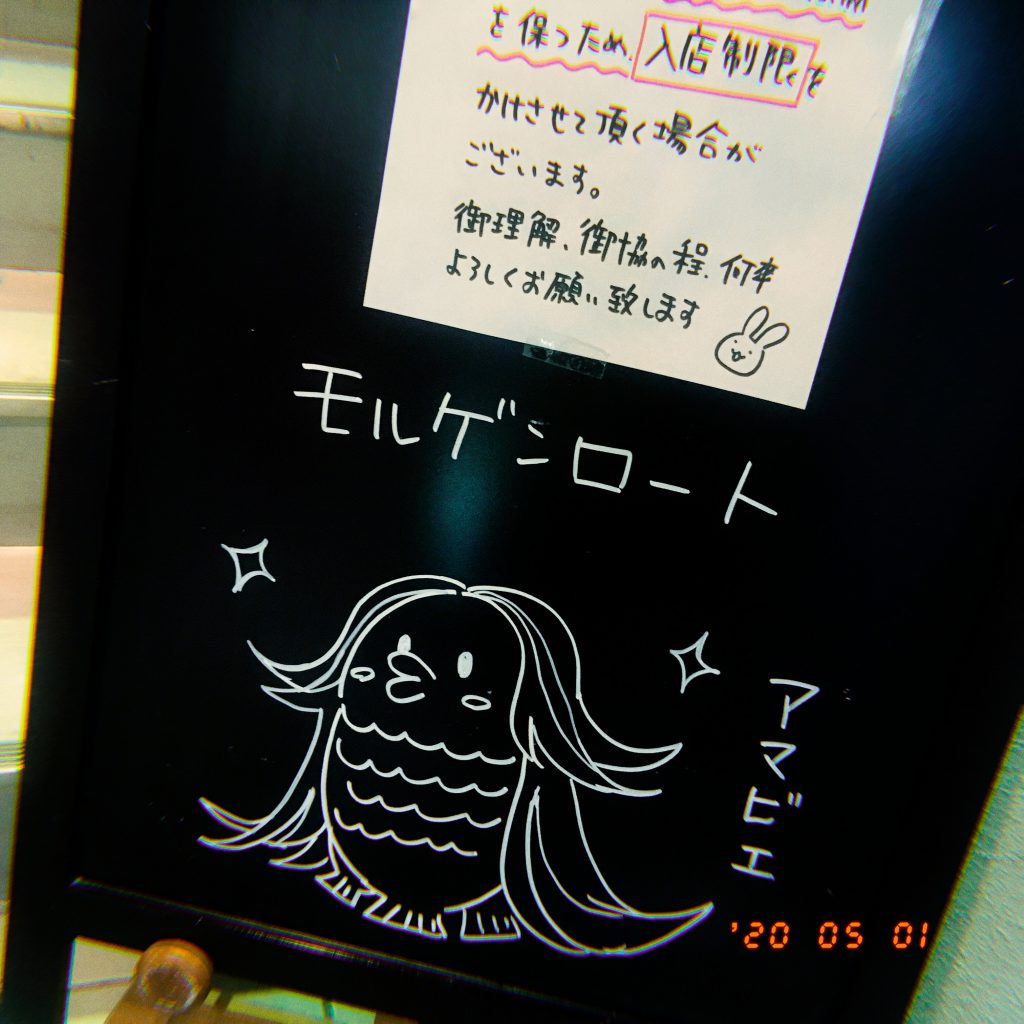 を保つため、入店制限を
かけさせて頂く場合が
ございます。
御理解、御協の程、何卒
よろしくお願い致します
モルゲンロート
アマビエ
'20 05 01